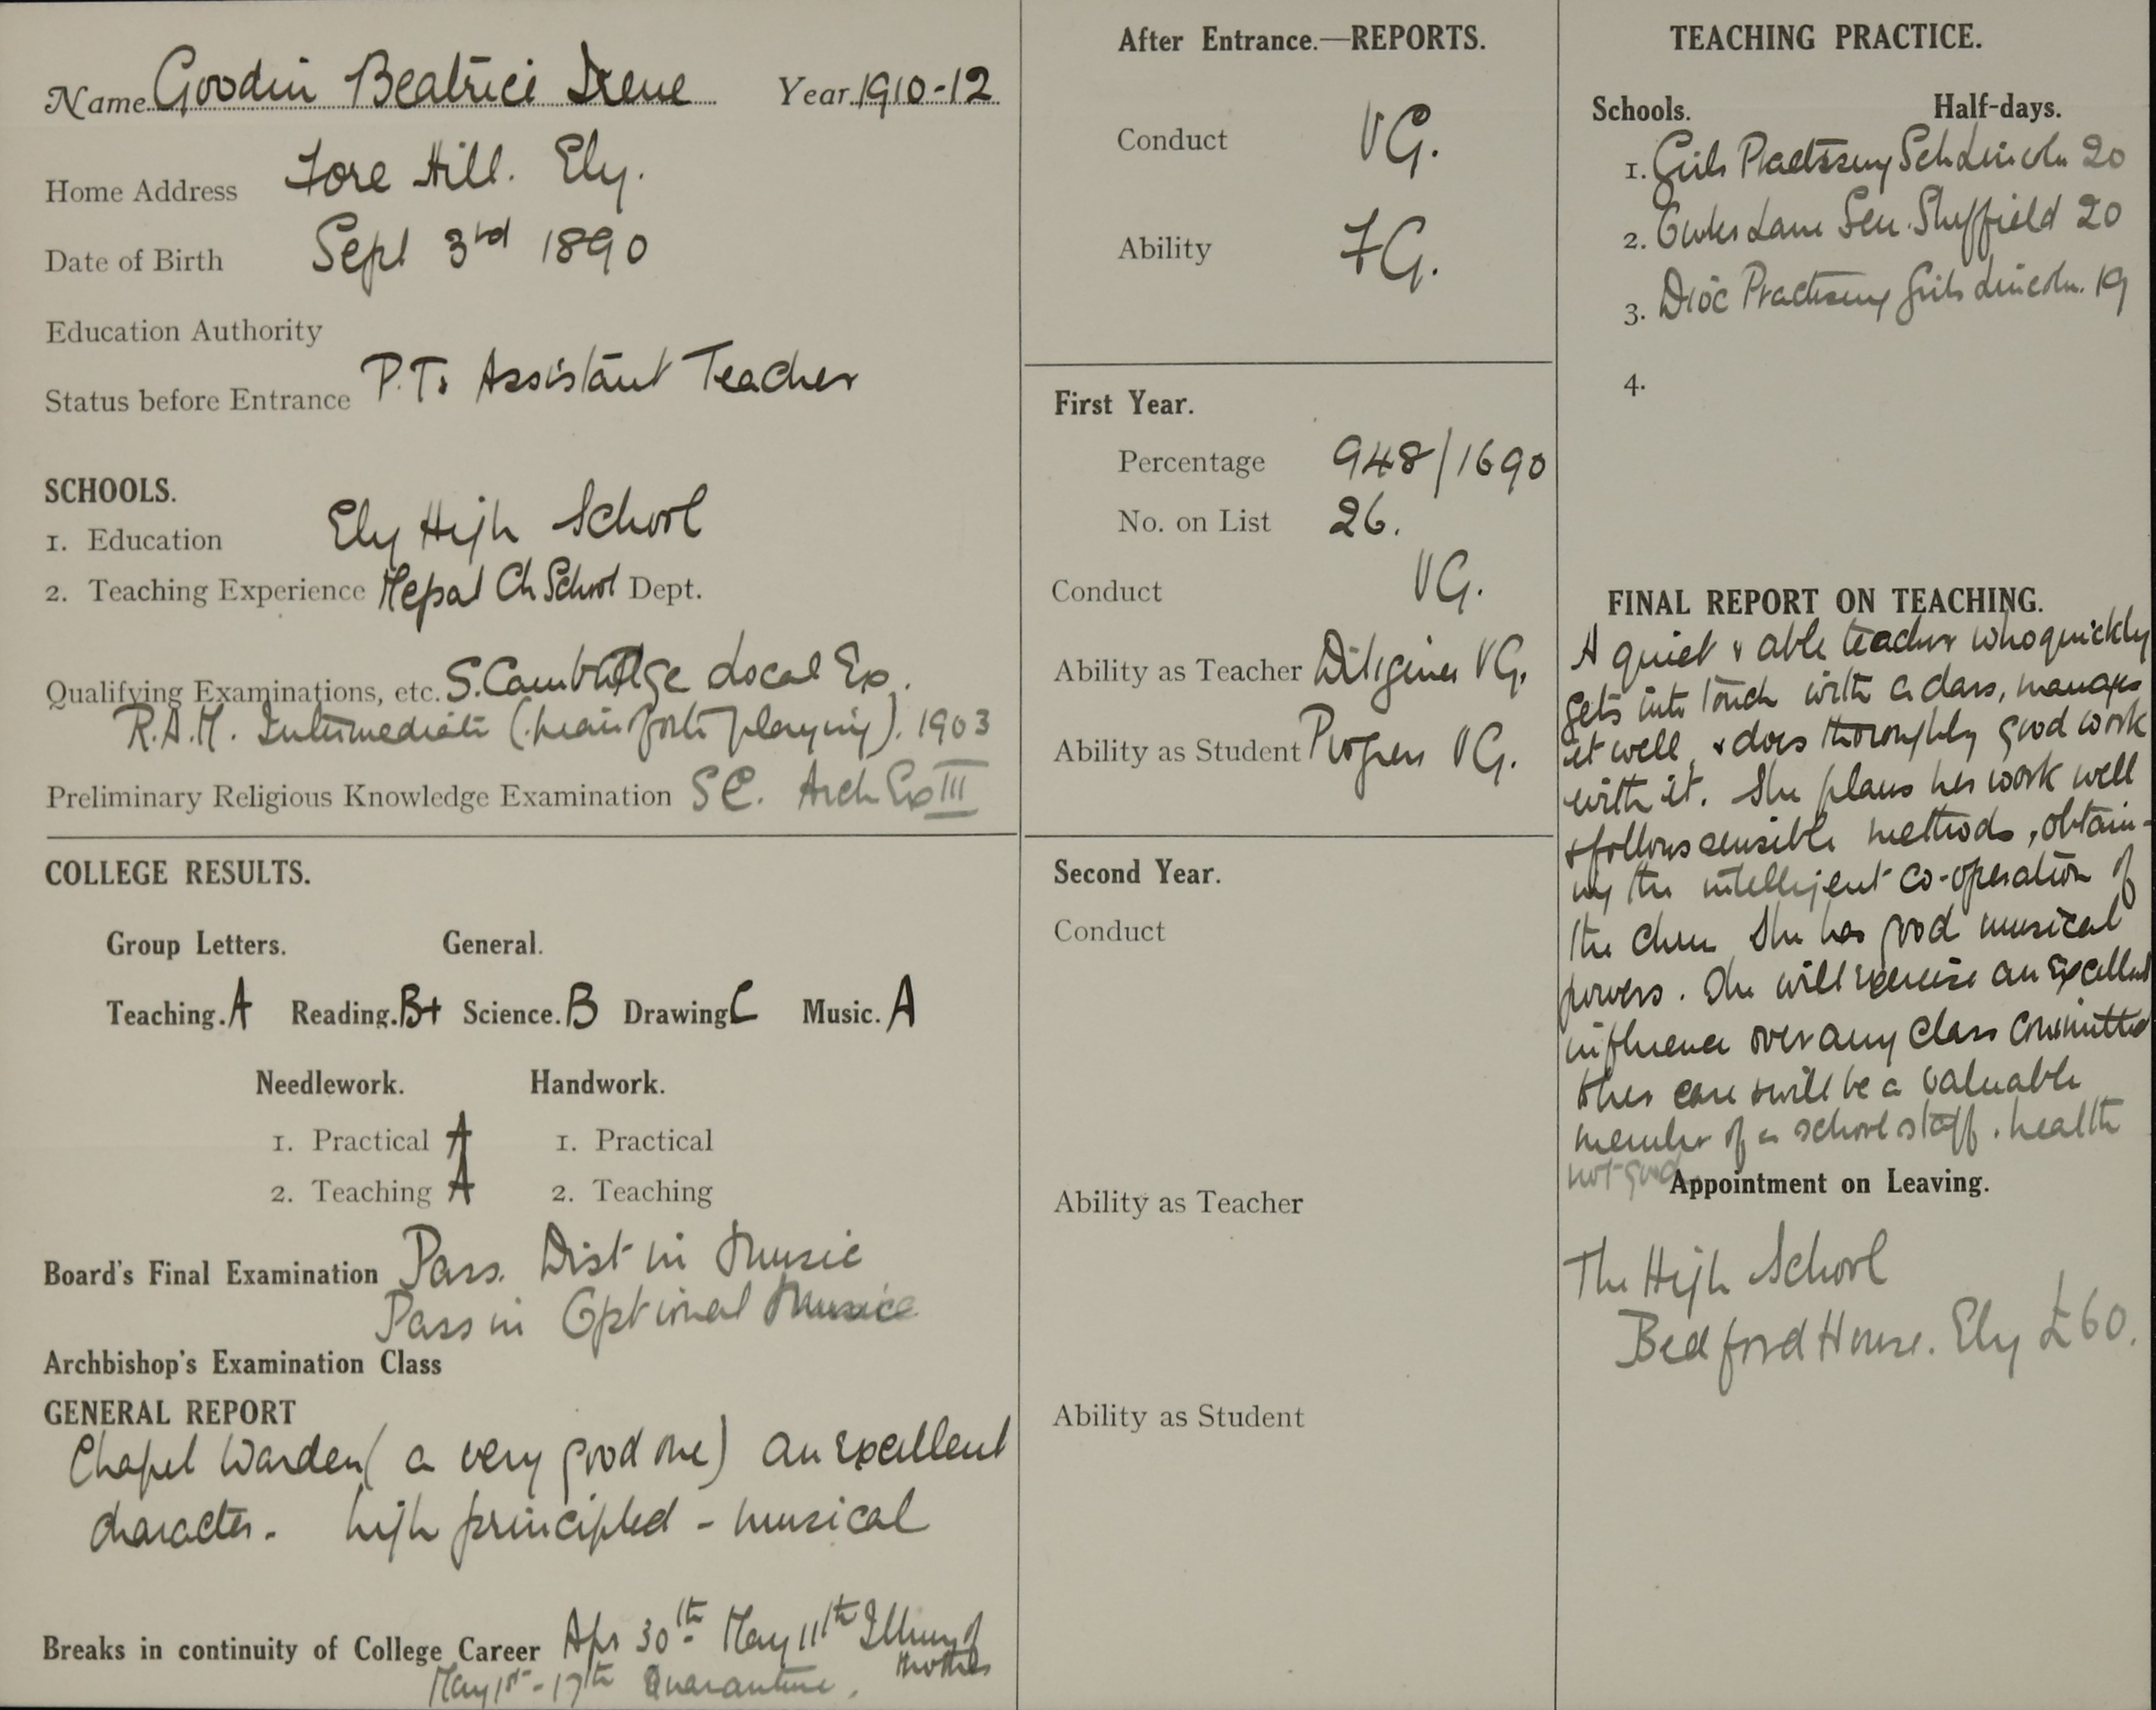 Name Goodin Beatrice Irene Year 1910-12
Home Address Fore Hill. Ely.
Date of Birth Sept 3rd 1890
Education Authority
Status before Entrance P.T. Assistant Teacher
SCHOOLS.
1. Education Ely High School
2. Teaching Experience Mepal Ch School Dept.
Qualifying Examinations, etc. S. Cambridge Local Ex.
R.A.M. Intermediate (pianoforte playing). 1903
Preliminary Religious Knowledge Examination SC. Arch Ex III
COLLEGE RESULTS.
Group Letters. General.
Teaching. A Reading. B+ Science. B Drawing C Music. A
Needlework. Handwork.
1. Practical A 1. Practical
2. Teaching A 2. Teaching
Board's Final Examination Pass. Dist in Music
Pass in Optional Music
Archbishop's Examination Class
GENERAL REPORT
Chapel Warden (a very good one) an excellent
character - high principled - musical
Breaks in continuity of College Career Apr 30th May 11th Illness of
mother
May 1st - 17th Quarantine.
After Entrance.—REPORTS.
Conduct VG.
Ability FG.
First Year.
Percentage 948/1690
No. on List 26.
Conduct VG.
Ability as Teacher Diligence VG.
Ability as Student Progress VG.
Second Year.
Conduct
Ability as Teacher
Ability as Student
TEACHING PRACTICE.
Schools. Half-days.
1. Girls Practising Sch Lincoln 20
2. Lane Sen. Sheffield 20
3. Dioc Practising Girls Lincoln. 19
4.
FINAL REPORT ON TEACHING.
A quiet & able teacher who quickly
gets into touch with a class, manages
it well, & does thoroughly good work
with it. She plans her work well
& follows sensible methods, obtain-
ing the intelligent co-operation of
the chn. She has good musical
powers. She will exercise an excellent
influence over any class committed
to her care & will be a valuable
member of a school staff. health
not good
Appointment on Leaving.
The High School
Bedford House. Ely £60.